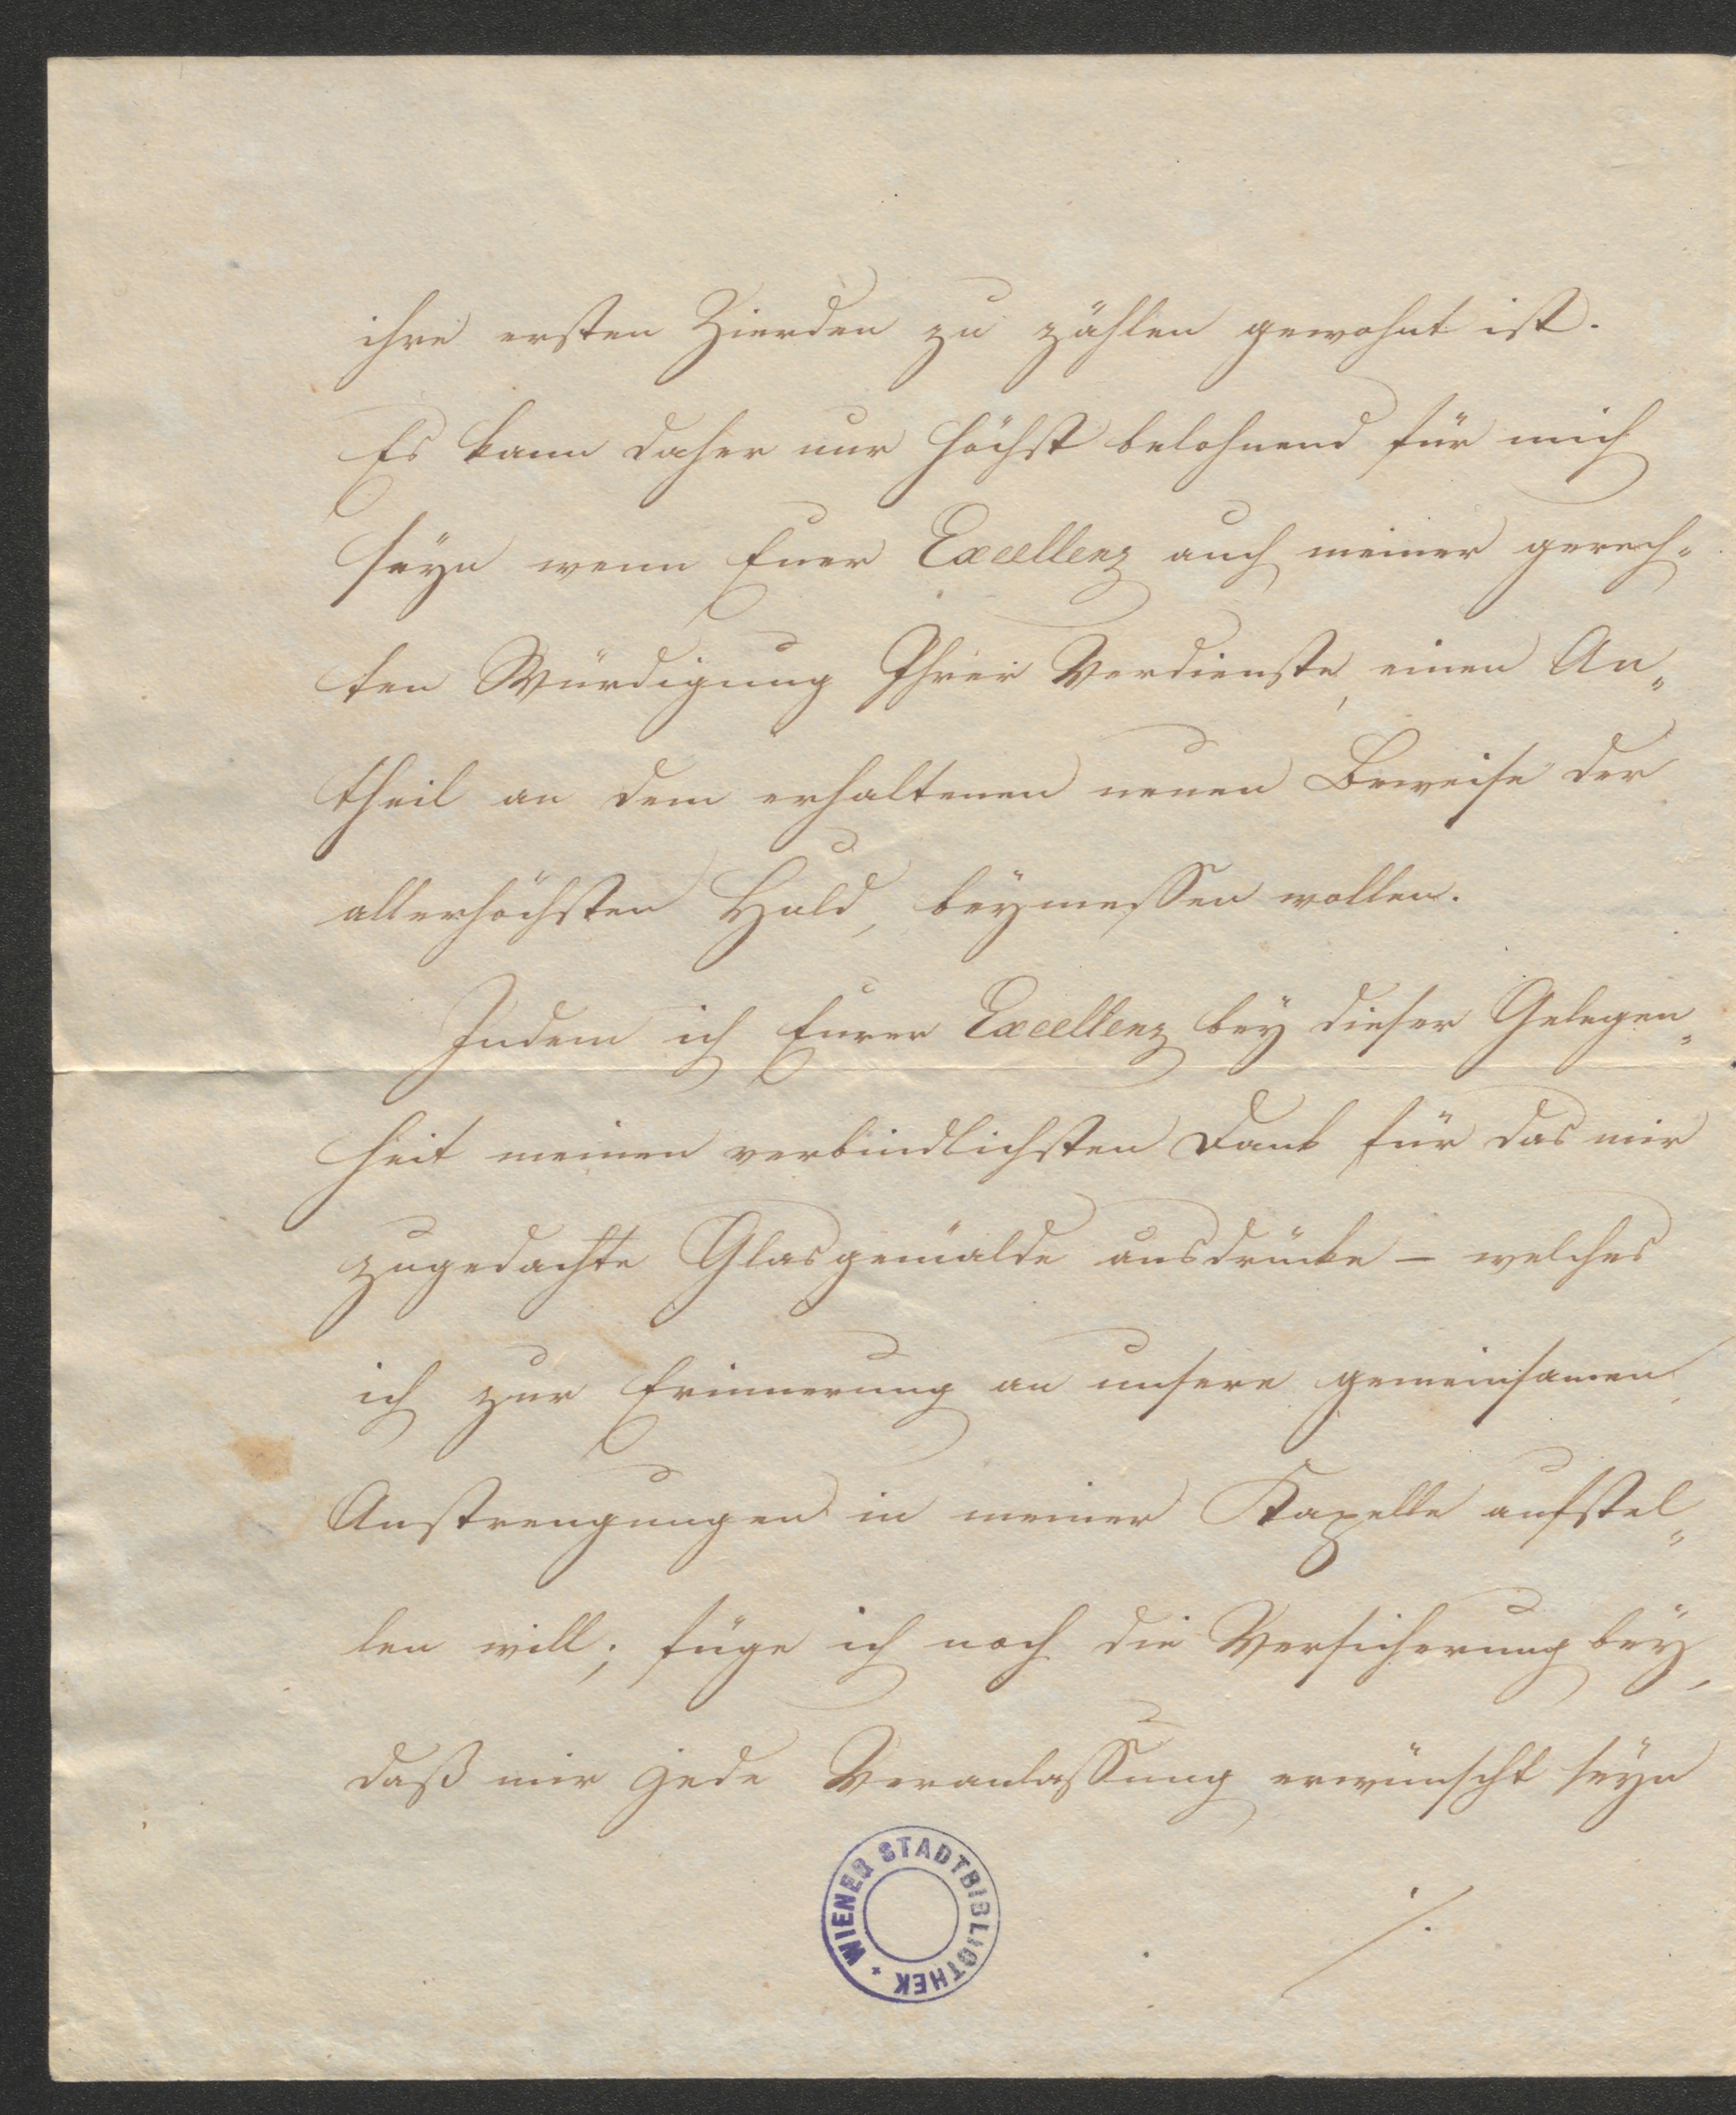 ihre ersten Zierden zu zählen gewohnt ist.
Es kann daher nur höchst belohnend für mich
seyn wenn Euer Excellenz auch meiner gerech-
ten Würdigung Ihrer Verdienste, einen An-
theil an dem erhaltenen neuen Beweise der
allerhöchsten Huld, beymessen wollen.
Indem ich Eurer Excellenz bey dieser Gelegen-
heit meinen verbindlichsten Dank für das mir
zugedachte Glasgemälde ausdrücke – welches
ich zur Erinnerung an unsere gemeinsamen
Anstrengungen in meiner Kapelle aufstel-
len will; füge ich noch die Versicherung bey,
daß mir jede Veranlassung erwünscht seyn
WIENER STADTBIBLIOTHEK
./.